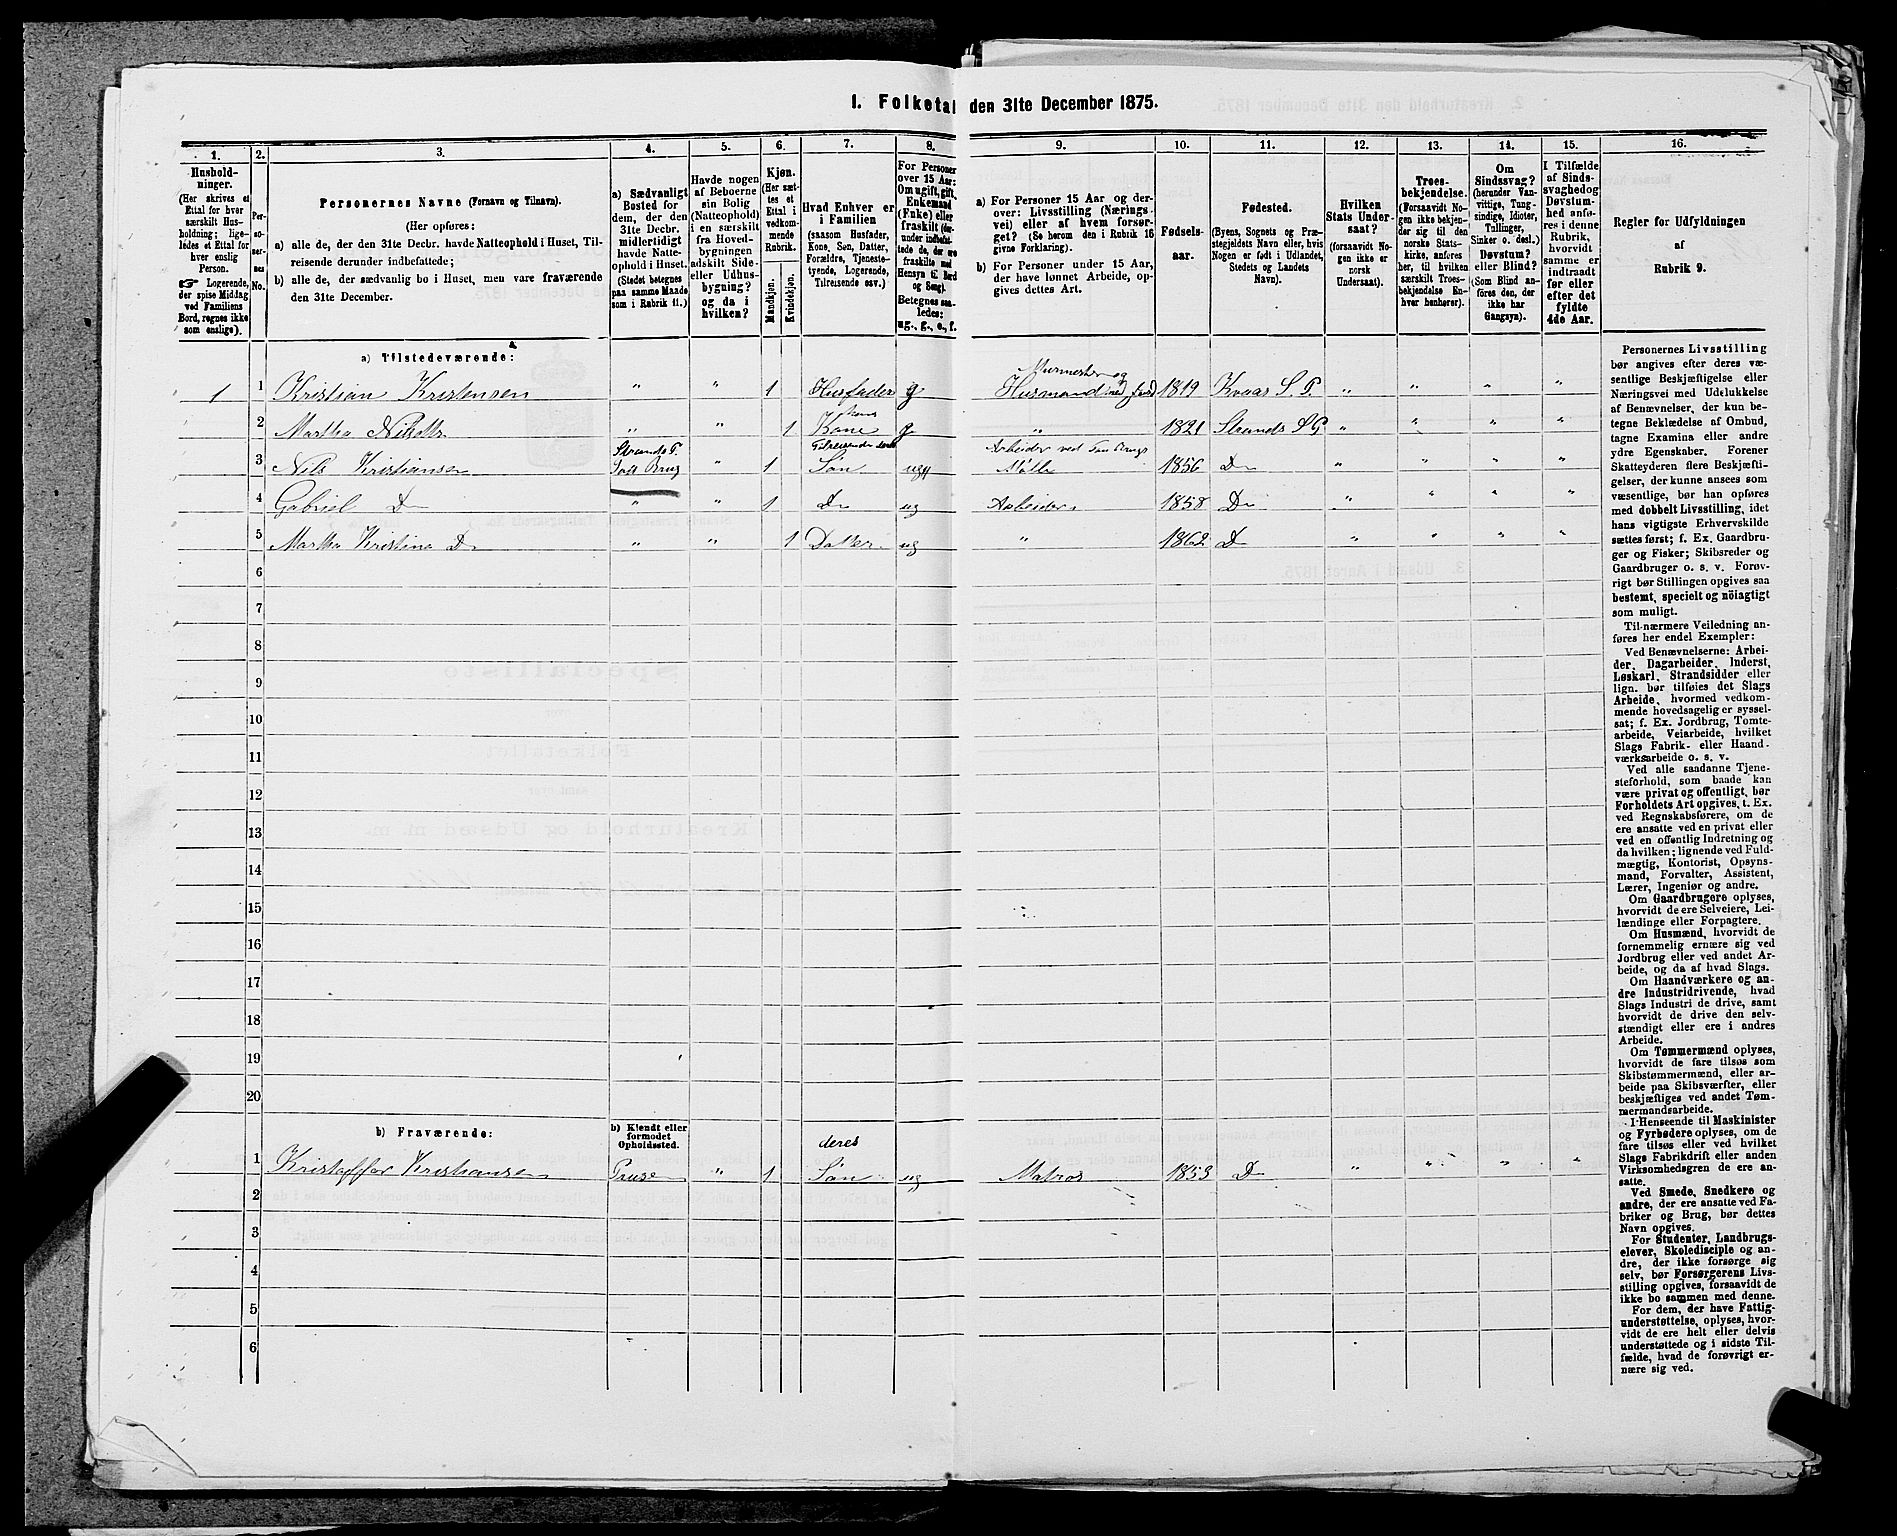 1. Folketal den 31te December 1875.
1. 2. 3. 4. 5. 6. 7. 8. 9. 10. 11. 12. 13. 14. 15. 16.
Hushold-
ninger.
(Her skrives et
Ettal for hver
særskilt Hus-
holdning; lige-
ledes et Ettal for
hver enslig
Person.
☞ Logerende,
der spise Middag
ved Familiens
Bord, regnes ikke
som enslige).
Per-
so-
ner-
nes
No.
Personernes Navne (Fornavn og Tilnavn).
(Her opføres:
a) alle de, der den 31te Decbr. havde Natteophold i Huset, Til-
reisende derunder indbefattede;
b) alle de, der sædvanlig bo i Huset, men vare fraværende
den 31te December.
a) Sædvanligt
Bosted for
dem, der den
31te Decbr.
midlertidigt
havde Natte-
ophold i Huset.
(Stedet betegnes
paa samme Maade
som i Rubrik 11.)
Havde nogen
af Beboerne
sin Bolig
(Natteophold)
i en særskilt
fra Hoved-
bygningen
adskilt Side-
eller Udhus-
bygning?
og da i
hvilken?
Kjøn.
(Her sæt-
tes et
Ettal i
vedkom-
mende
Rubrik.
Mandkjøn.
Kvindekjøn.
Hvad Enhver er
i Familien
(saasom Husfader,
Kone, Søn, Datter,
Forældre, Tjeneste-
tyende, Logerende,
Tilreisende osv.)
For Personer
over 15 Aar:
Om ugift, gift,
Enkemand
(Enke) eller
fraskilt (der-
under indbefat-
tede de, der ere
fraskilte med
Hensyn til Bord
og Seng).
Betegnes saa-
ledes:
ug., g., e., f.
a) For Personer 15 Aar og der-
over: Livsstilling (Nærings-
vei) eller af hvem forsør-
get? (Se herom den i Rubrik 16
givne Forklaring).
b) For Personer under 15 Aar,
der have lønnet Arbeide, op-
gives dettes Art.
Fødsels-
aar.
Fødested.
(Byens, Sognets og Præ-
stegjeldets Navn eller, hvis
Nogen er født i Udlandet,
Stedets og Landets
Navn).
Hvilken
Stats Under-
saat?
(forsaavidt No-
gen ikke er
norsk
Undersaat).
Troes-
bekjendelse.
(Forsaavidt No-
gen ikke bekjen-
der sig til den
norske Stats-
kirke, anføres
her, til hvilken
Troesbe-
kjendelse En-
hver henhører).
Om
Sindssvag?
(herunder Van-
vittige, Tung-
sindige, Idioter,
Tullinger,
Sinker o. desl.)
Døvstum?
eller Blind?
(Som Blind an-
føres den, der
ikke har
Gangsyn).
I Tilfælde
af Sinds-
svaghed og
Døvstum-
hed anfø-
res i denne
Rubrik,
hvorvidt
samme er
indtraadt
før eller
efter det
fyldte
4de Aar.
Regler for Udfyldningen
af
Rubrik 9.
a) Tilstedeværende:
1 1 Kristian Kristensen " " 1 Husfader g Murmester og Husmand med Jord 1819 Kvaas S. P. " " " "
2 Martha Nilsdtr " " 1 hans Kone g " 1821 Strands S P. " " " "
3 Nils Kristiansen Strands P. Brug " 1 Tilreisende deres Søn ug Arbeider ved Brugs Mølle 1856 D " " " "
4 Gabriel D " " 1 D ug Arbeider 1858 D " " " "
5 Martha Kristina D " " 1 Datter ug " 1862 D " " " "
6
7
8
9
10
11
12
13
14
15
16
17
18
19
20
b) Fraværende:
b) Kjendt eller
formodet
Opholdssted.
1 Kristoffer Kristiansen " 1 deres Søn ug Matros 1853 D " " " "
2
3
4
5
6
Personernes Livsstilling
bør angives efter deres væ-
sentlige Beskjæftigelse eller
Næringsvei med Udelukkelse
af Benævnelser, der kun be-
tegne Beklædelse af Ombud,
tagne Examina eller andre
ydre Egenskaber. Forener
Skatteyderen flere Beskjæfti-
gelser, der kunne ansees som
væsentlige, bør han opføres
med dobbelt Livsstilling, idet
hans vigtigste Erhvervskilde
sættes først; f. Ex. Gaardbru-
ger og Fisker; Skibsreder og
Gaardbruger o. s. v. Forøv-
rigt bør Stillingen opgives saa
bestemt, specielt og nøiagtigt
som muligt.
Til nærmere Veiledning an-
føres her endel Exempler:
Ved Benævnelserne: Arbei-
der, Dagarbeider, Inderst,
Løskarl, Strandsidder eller
lign. bør tilføies det Slags
Arbeide, hvormed vedkom-
mende hovedsagelig er syssel-
sat; f. Ex. Jordbrug, Tomte-
arbeide, Veiarbeide, hvilket
Slags Fabrik- eller Haand-
værksarbeide o. s. v.
Ved alle saadanne Tjene-
steforhold, som baade kan
være privat og offentligt, bør
Forholdets Art opgives, t. Ex.
ved Regnskabsførere, om de
ere ansatte ved en privat eller
ved en offentlig Indretning og
da hvilken; lignende ved Fuld-
mægtig, Kontorist, Opsyns-
mand, Forvalter, Assistent,
Lærer, Ingeniør og andre.
Om Gaardbrugere oplyses,
hvorvidt de ere Selveiere, Lei-
lændinge eller Forpagtere.
Om Husmænd, hvorvidt de
fornemmelig ernære sig ved
Jordbrug eller ved andet Ar-
beide, og da af hvad Slags.
Om Haandværkere og an-
dre Industridrivende, hvad
Slags Industri de drive, samt
hvorvidt de drive den selv-
stændigt eller ere i andres
Arbeide.
Om Tømmermænd oplyses,
hvorvidt de fare tilsøs som
Skibstømmermænd, eller ar-
beide paa Skibsværfter, eller
beskjæftiges ved andet Tøm-
mermandsarbeide.
I Henseende til Maskinister
og Fyrbødere oplyses, om de
fare tilsøs eller ved hvilket
Slags Fabrikdrift eller anden
Virksomhedsgren de ere an-
satte.
Ved Smede, Snedkere og
andre, der ere ansatte ved Fa-
briker og Brug, bør dettes
Navn opgives.
For Studenter, Landbrugs-
elever, Skoledisciple og an-
dre, der ikke forsørge sig
selv, bør Forsørgerens Livs-
stilling opgives, forsaavidt de
ikke bo sammen med denne.
For dem, der have Fattig-
understøttelse, oplyses, hvor-
vidt de ere helt eller delvis
understøttede og i sidste Til-
fælde, hvad de forøvrigt er-
nære sig ved.